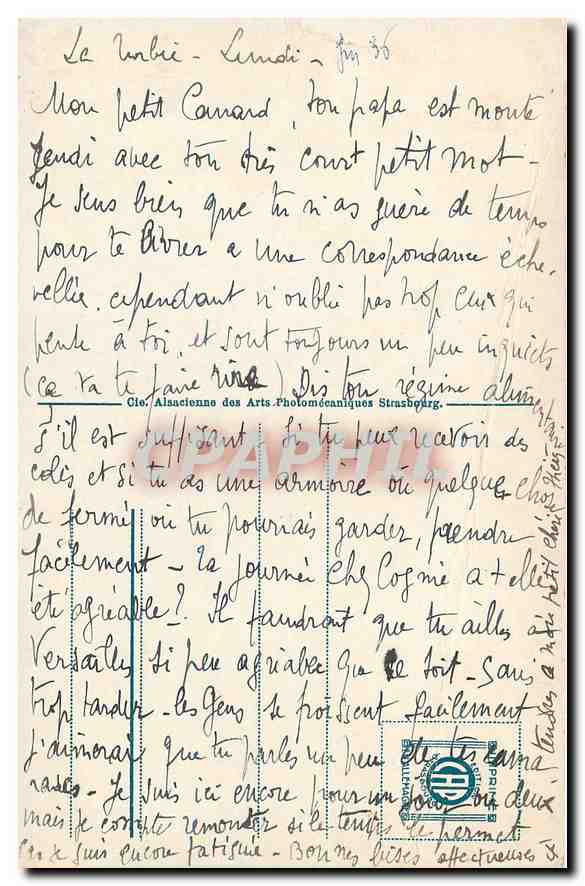 La Turbie - Lundi - Juin 36
Mon petit Canard, ton papa est monté
Jeudi avec ton très court petit mot -
Je sens bien que tu n'as guère de temps
pour te livrer a une correspondance éche-
vellée. cependant n'oublie pas trop ceux qui
pense à toi, et sont toujours un peu inquiets
(ça va te faire rire) Dis ton régime alimentaire
Cie. Alsacienne des Arts Photomécaniques Strasbourg.
s'il est suffisant - Si tu peux recevoir des
colis et si tu as une armoire ou quelque chose
CPAPHIL
de fermé où tu pourrais garder, prendre
facilement - Ta journée chez Cognié a t elle
été agréable? Il faudrait que tu ailles à
Versailles si peu agréable que ce soit - Sans
trop tarder - les gens se froissent facilement
J'aimerai que tu parles un peu de tes cama
rades - Je suis ici encore pour un jour ou deux
IMPRIMÉ
CAP
mais je compte remonter si le temps le permet
car je suis encore fatiguée - Bonnes bises affectueuses &
tendres a mon petit chéri